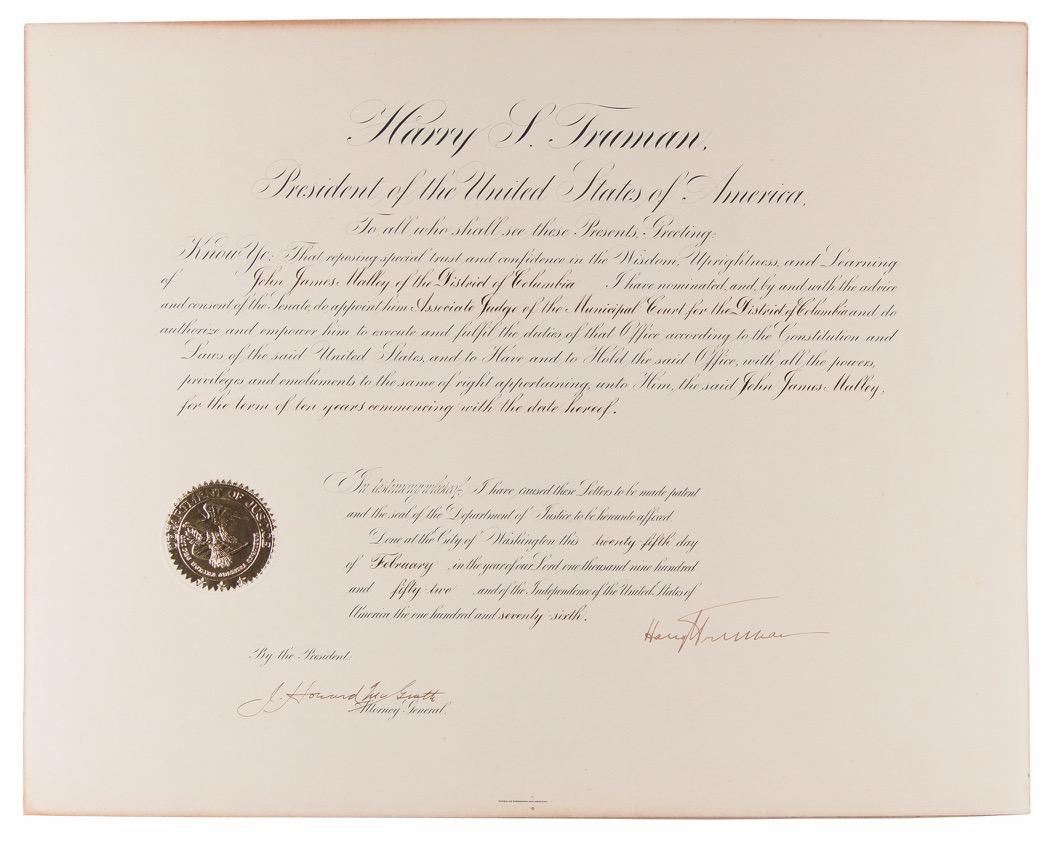 Harry S. Truman,
President of the United States of America,
To all who shall see these Presents, Greeting:
Know Ye; That reposing special trust and confidence in the Wisdom, Uprightness, and Learning
of John James Malley of the District of Columbia I have nominated, and, by and with the advice
and consent of the Senate, do appoint him Associate Judge of the Municipal Court for the District of Columbia and do
authorize and empower him to execute and fulfil the duties of that Office according to the Constitution and
Laws of the said United States, and to Have and to Hold the said Office, with all the powers,
privileges and emoluments to the same of right appertaining, unto Him, the said John James Malley,
for the term of ten years commencing with the date hereof.
In testimony whereof, I have caused these Letters to be made patent
and the seal of the Department of Justice to be hereunto affixed.
Done at the City of Washington this twenty-fifth day
of February, in the year of our Lord one thousand nine hundred
and fifty-two, and of the Independence of the United States of
America the one hundred and seventy-sixth.
Harry Truman
By the President:
J. Howard McGrath
Attorney General.
OF JUSTICE